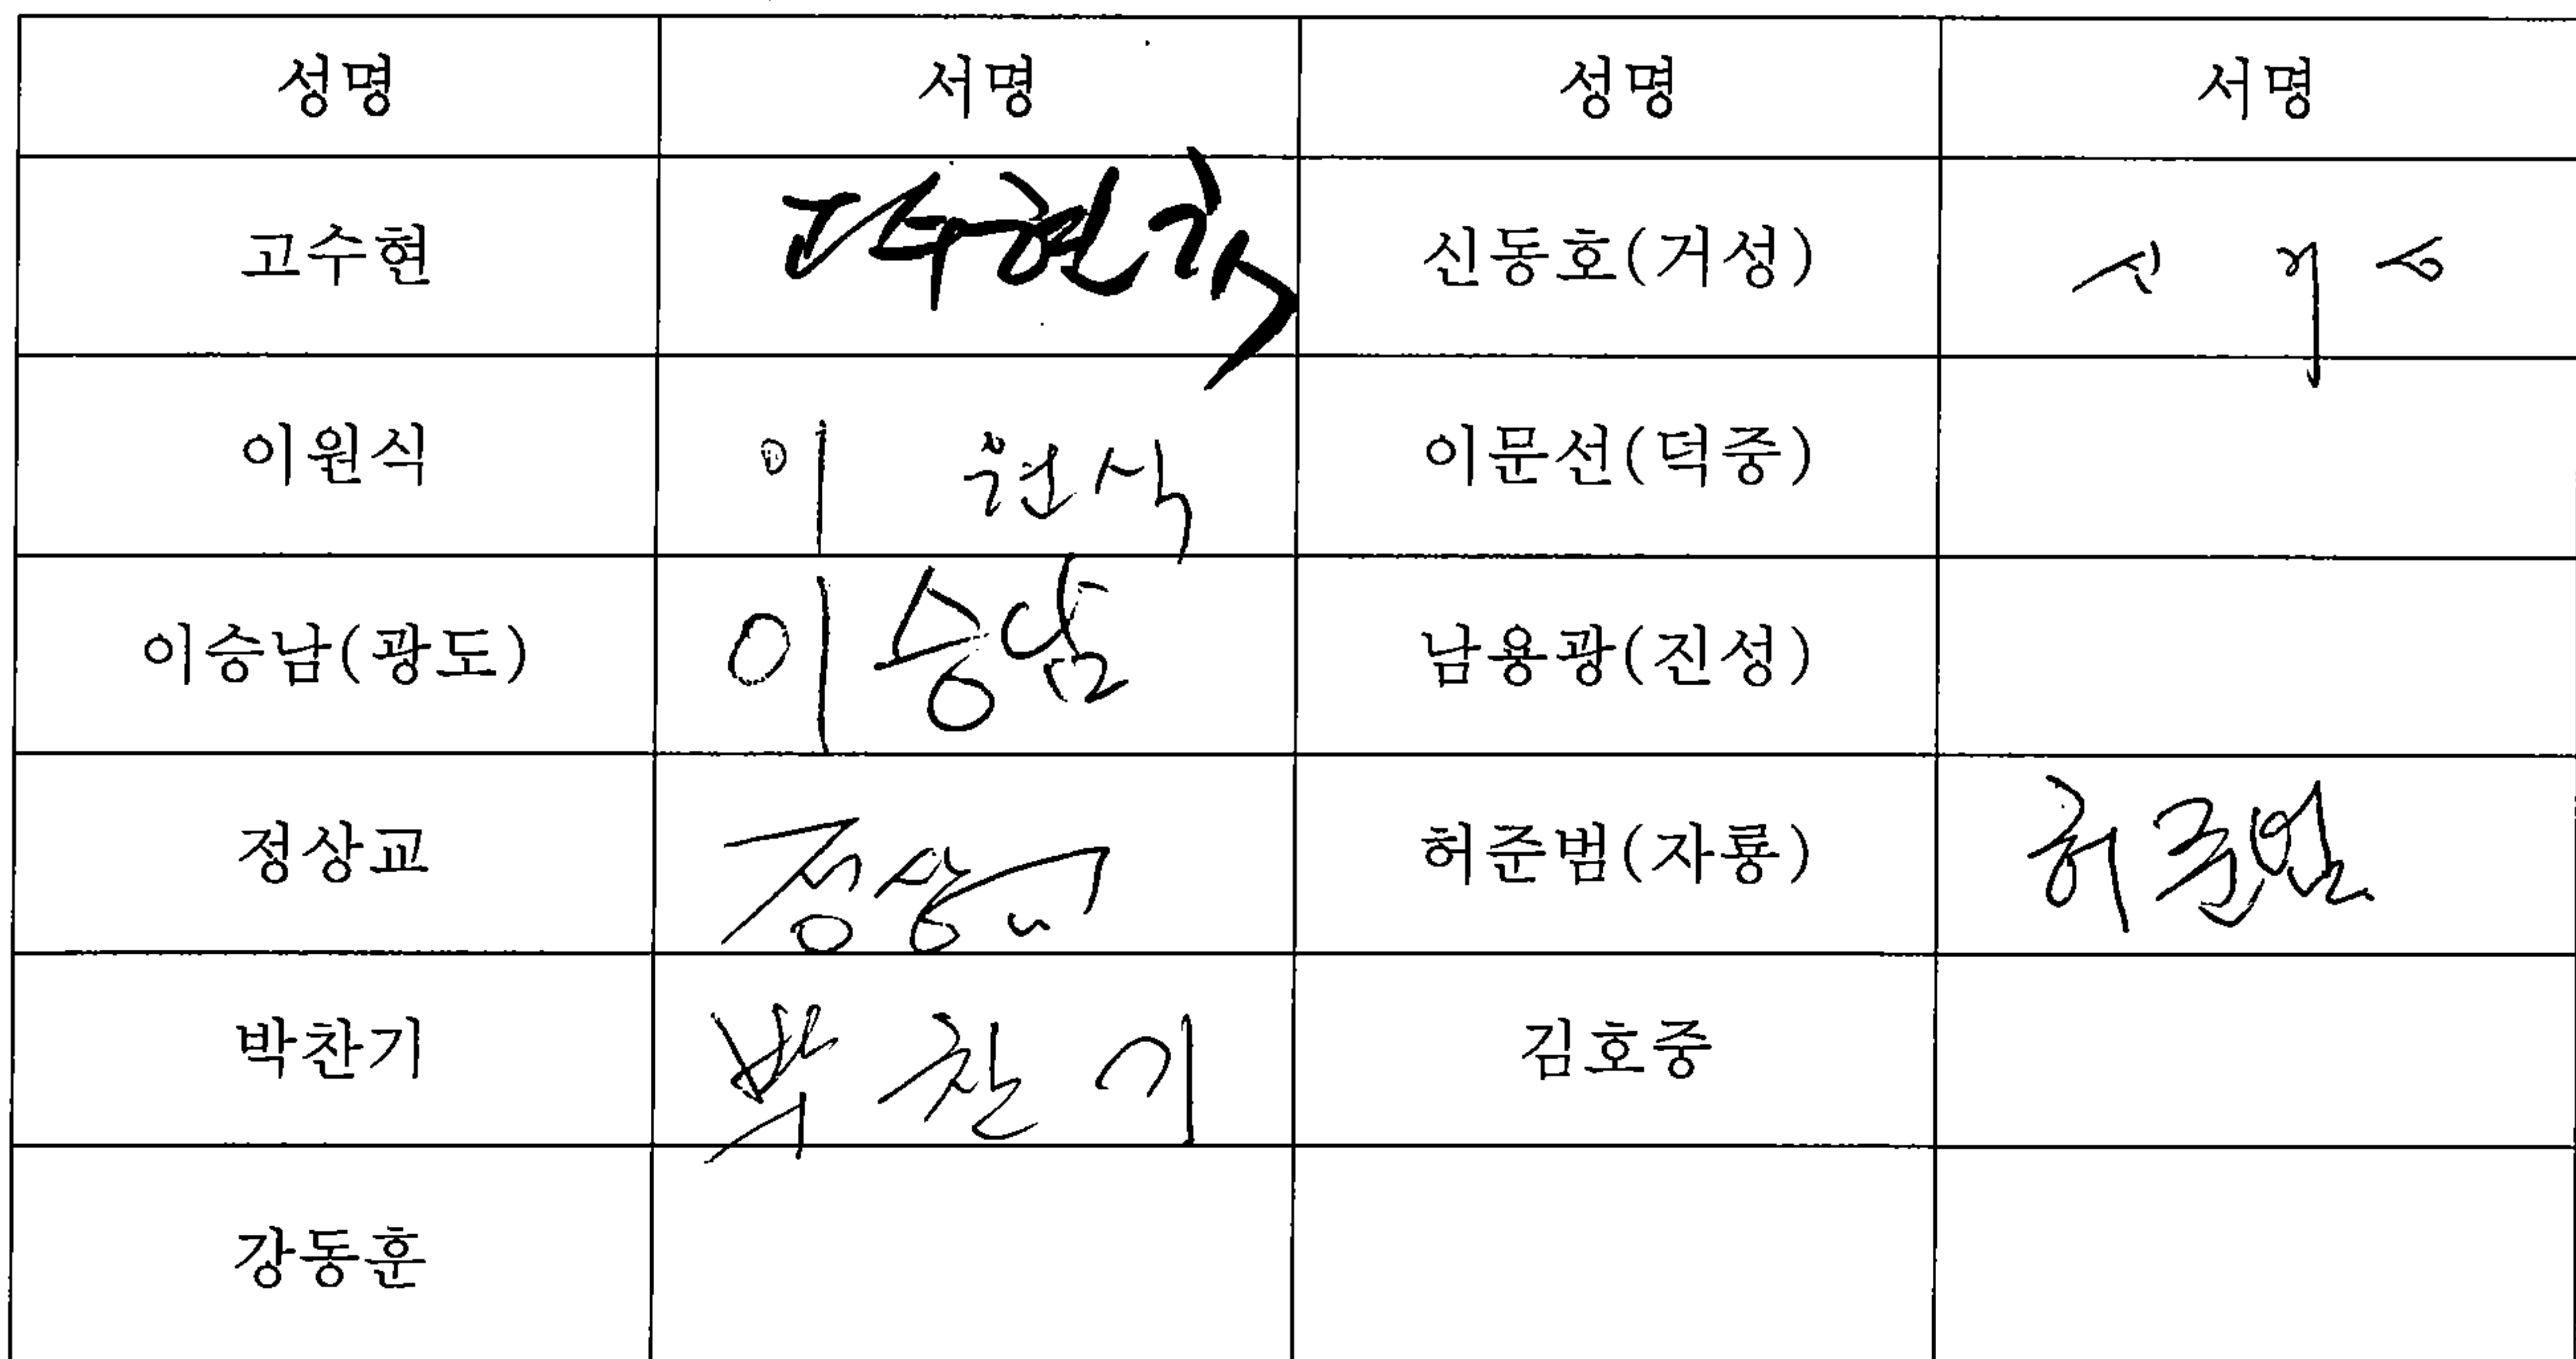 성명 서명 성명 서명
고수현 신동호(거성)
이원식 이원식 이문선(덕중)
이승남(광도) 이승남 남용광(진성)
정상교 정상교 허준범(자룡) 허준범
박찬기 박찬기 김호중
강동훈